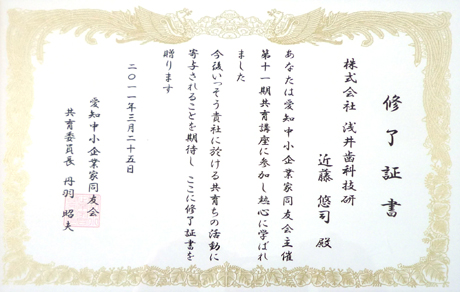 修了証書
株式会社 浅井歯科技研
近藤 悠司 殿
あなたは愛知中小企業家同友会主催
第十一期共育講座に参加し熱心に学ばれ
ました
今後いっそう貴社に於ける共育ちの活動に
寄与されることを期待し ここに修了証書を
贈ります
二〇一一年三月二十五日
愛知中小企業家同友会
共育委員長 丹羽 昭夫